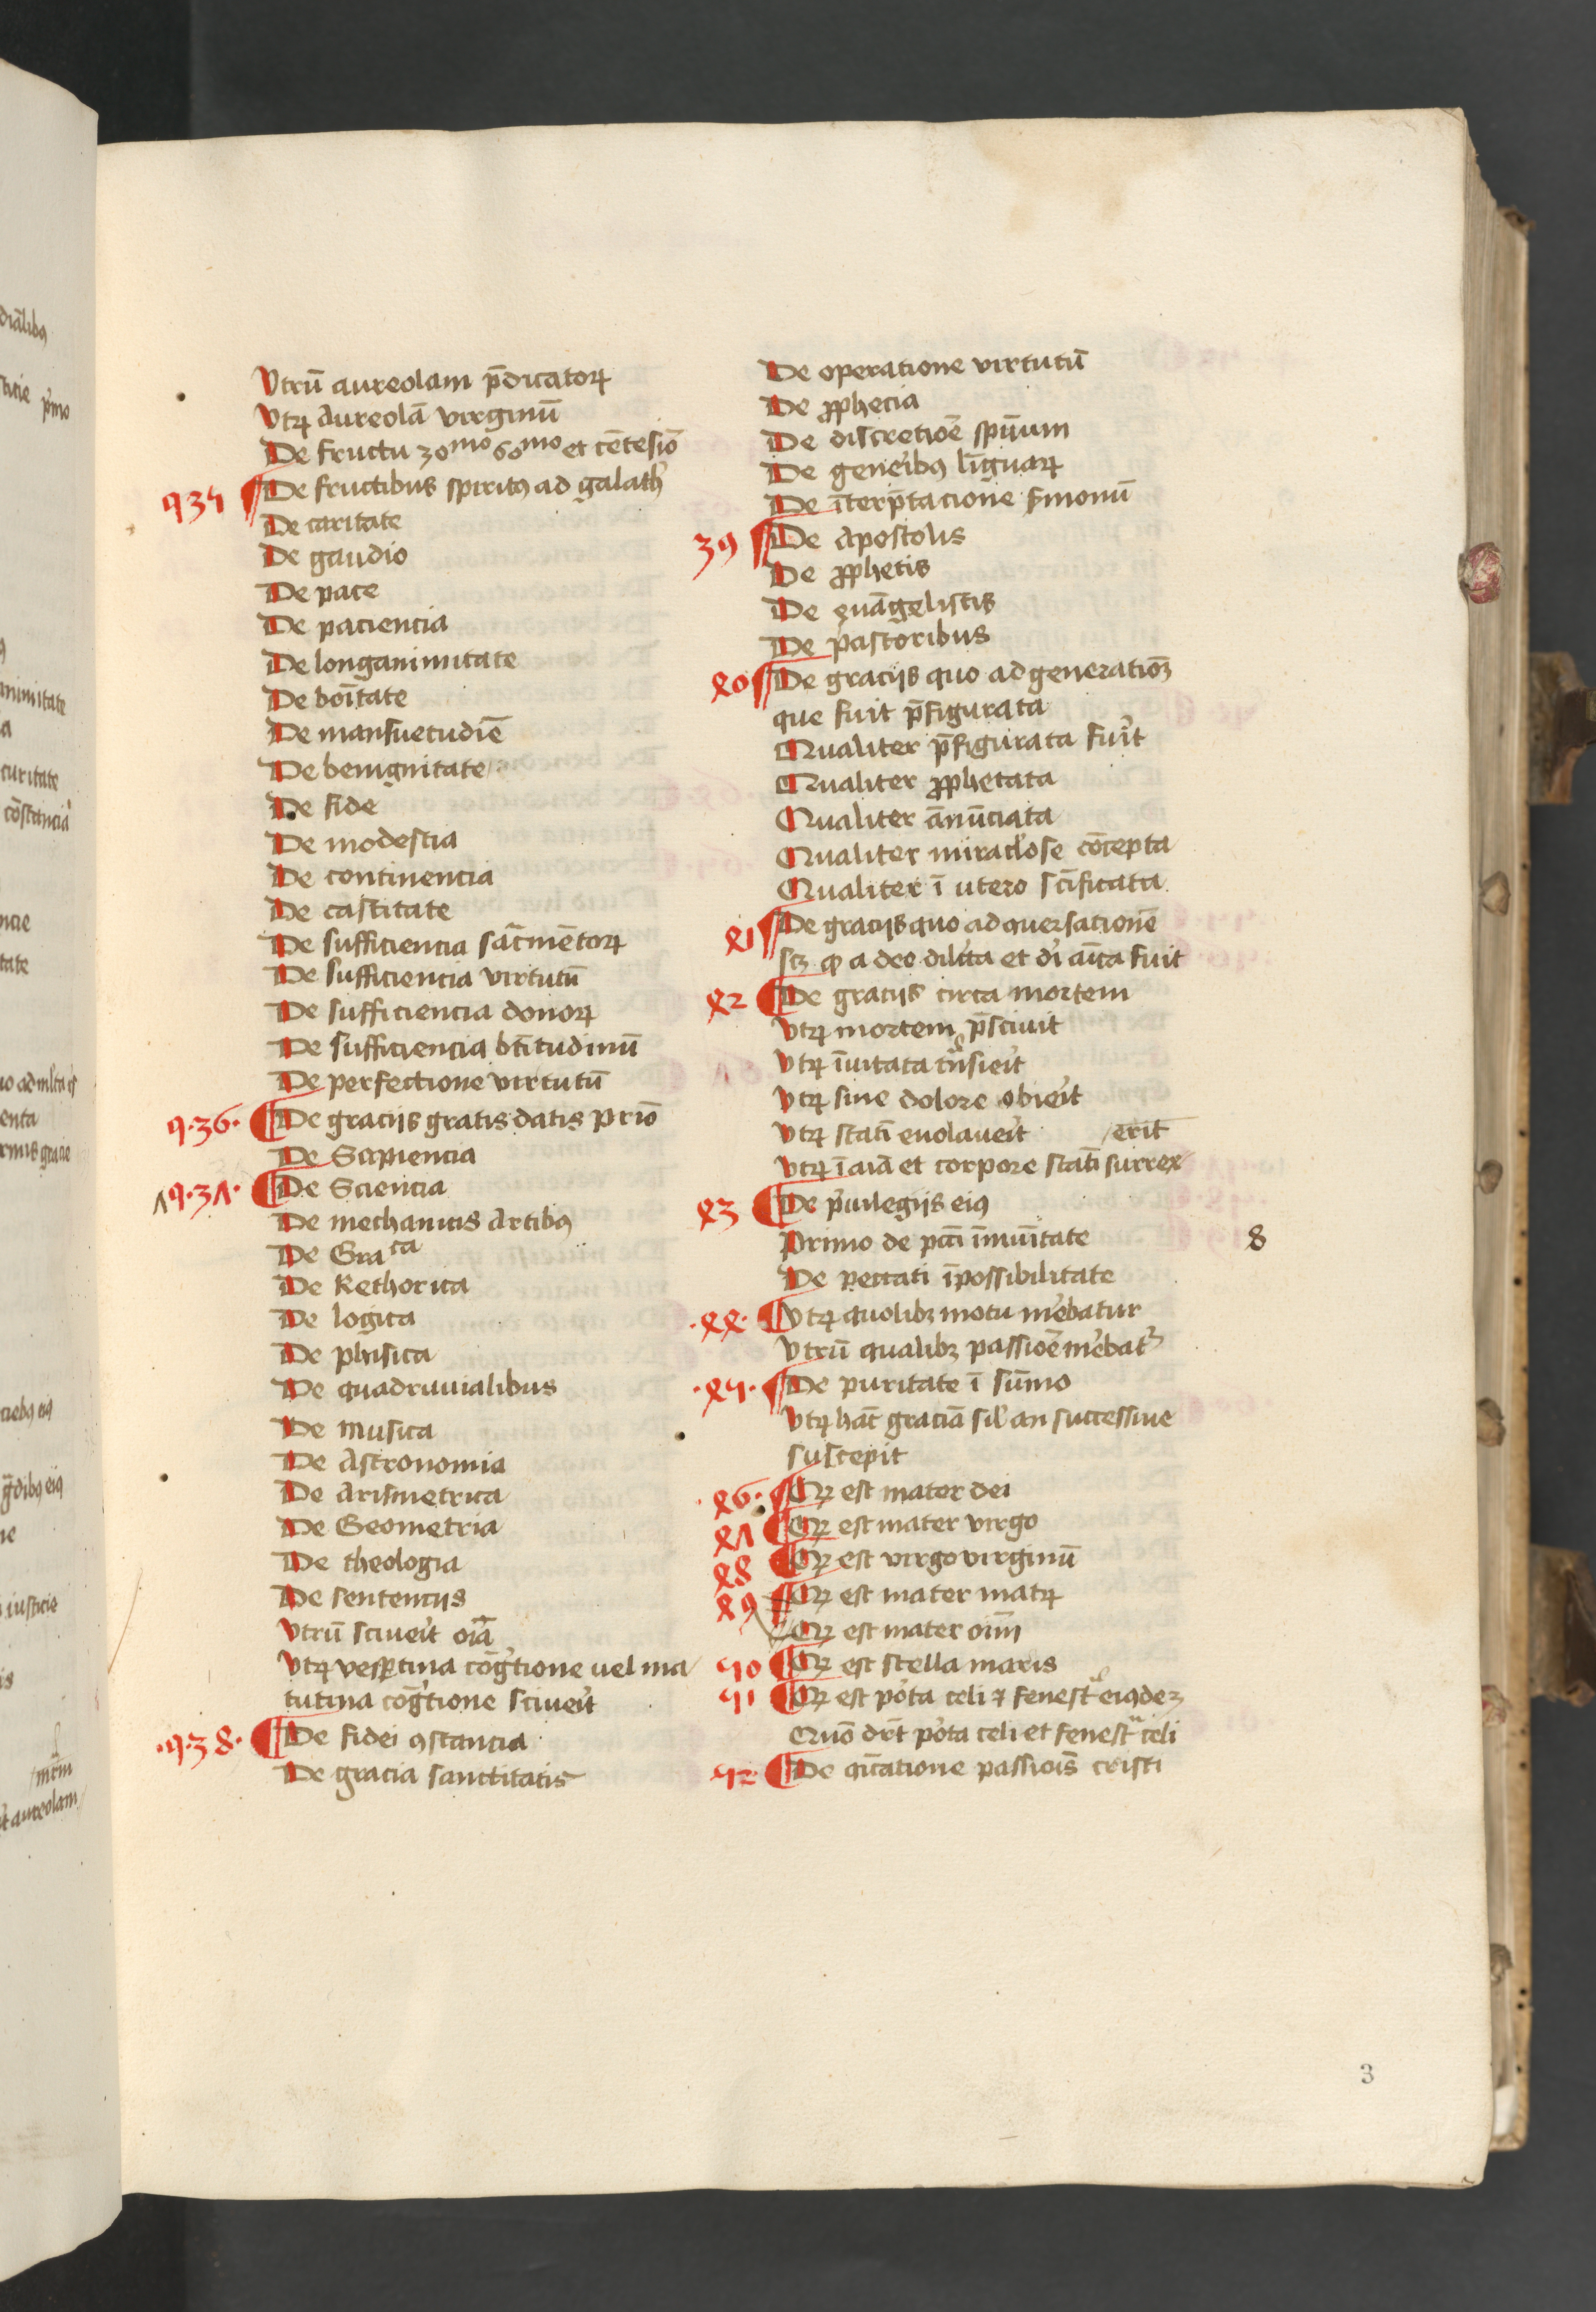 Vtrū aureolam p̄dicatoꝝ
Vtꝝ Aureolā virginū
De fructu 30mo 60mo et cētesiō
q 35 De fructibus spiritꝰ ad galath'
De caritate
De gaudio
De pace
De paciencia
De longanimitate
De boītate
De mansuetudīe
De benignitate
De fide
De modestia
De continencia
De castitate
De sufficiencia sac̄mētoꝝ
De sufficiencia virtutū
De sufficiencia donoꝝ
De sufficiencia bt̄itudinū
De perfectione virtutū
q·36· De gracijs gratis datis prīo
De Sapiencia
q·37· De Sciencia
De mechanicis Artibꝰ
De Graca
De Rethorica
De logica
De phisica
De quadruuialibus
De musica
De Astronomia
De Arismetrica
De Geometria
De theologia
De sentencijs
Vtrū sciue'it oīa
Vtꝝ vesꝑtina cog̅'tione uel ma
tutina cog̅'tione sciue'it
·q·38· De fidei ꝯstancia
De gracia sanctitatis
De operatione virtutū
De ꝓphecia
De discretiōe spūum
De gene'ibꝰ līguaꝝ
De īterp̄tacione s'monū
39 De Apostolis
De ꝓphetis
De euāgelistis
De pastoribus
40 De gracijs quo ad generatiōꝫ
que fuit p̄figurata
Qualiter p̄figurata fu'it
Qualiter ꝓphetata
Qualiter ānūciata
Qualiter miracl'ose cōcepta
Qualiter ī utero sc̄ificata
41 De gracijs quo ad ꝯuersationē
scꝫ ꝙ a deo dil'cta et di' aīca fuit
42 De gracijs circa mortem
Vtꝝ mortem p̄sciuit
Vtꝝ īuitata t̄nsie'it
Vtꝝ sine dolore obie'it
Vtꝝ statī euolaue'it /erit
Vtꝝ ī aīa et corpore statī surrex
43 De p'uilegijs eiꝰ
Primo de pcc̄i īmuītate
De peccati īpossibilitate
·44· Vtꝝ quolibꝫ motu me'batur
Vtrū qualibꝫ passiōe me'bat'
·45· De puritate ī sūmo
Vtꝝ hāc graciā sil' an successiue
suscepit
·46· Qꝫ est mater dei
47 Qꝫ est mater virgo
48 Qꝫ est virgo virginū
49 Qꝫ est mater matꝝ
Qꝫ est mater oīm
50 Qꝫ est stella maris
51 Qꝫ est po'ta celi ⁊ fenestᵃ eiꝰdeꝫ
Quō dr̄t po'ta celi et fenestᵃ celi
52 De passiōis cristi
8
3